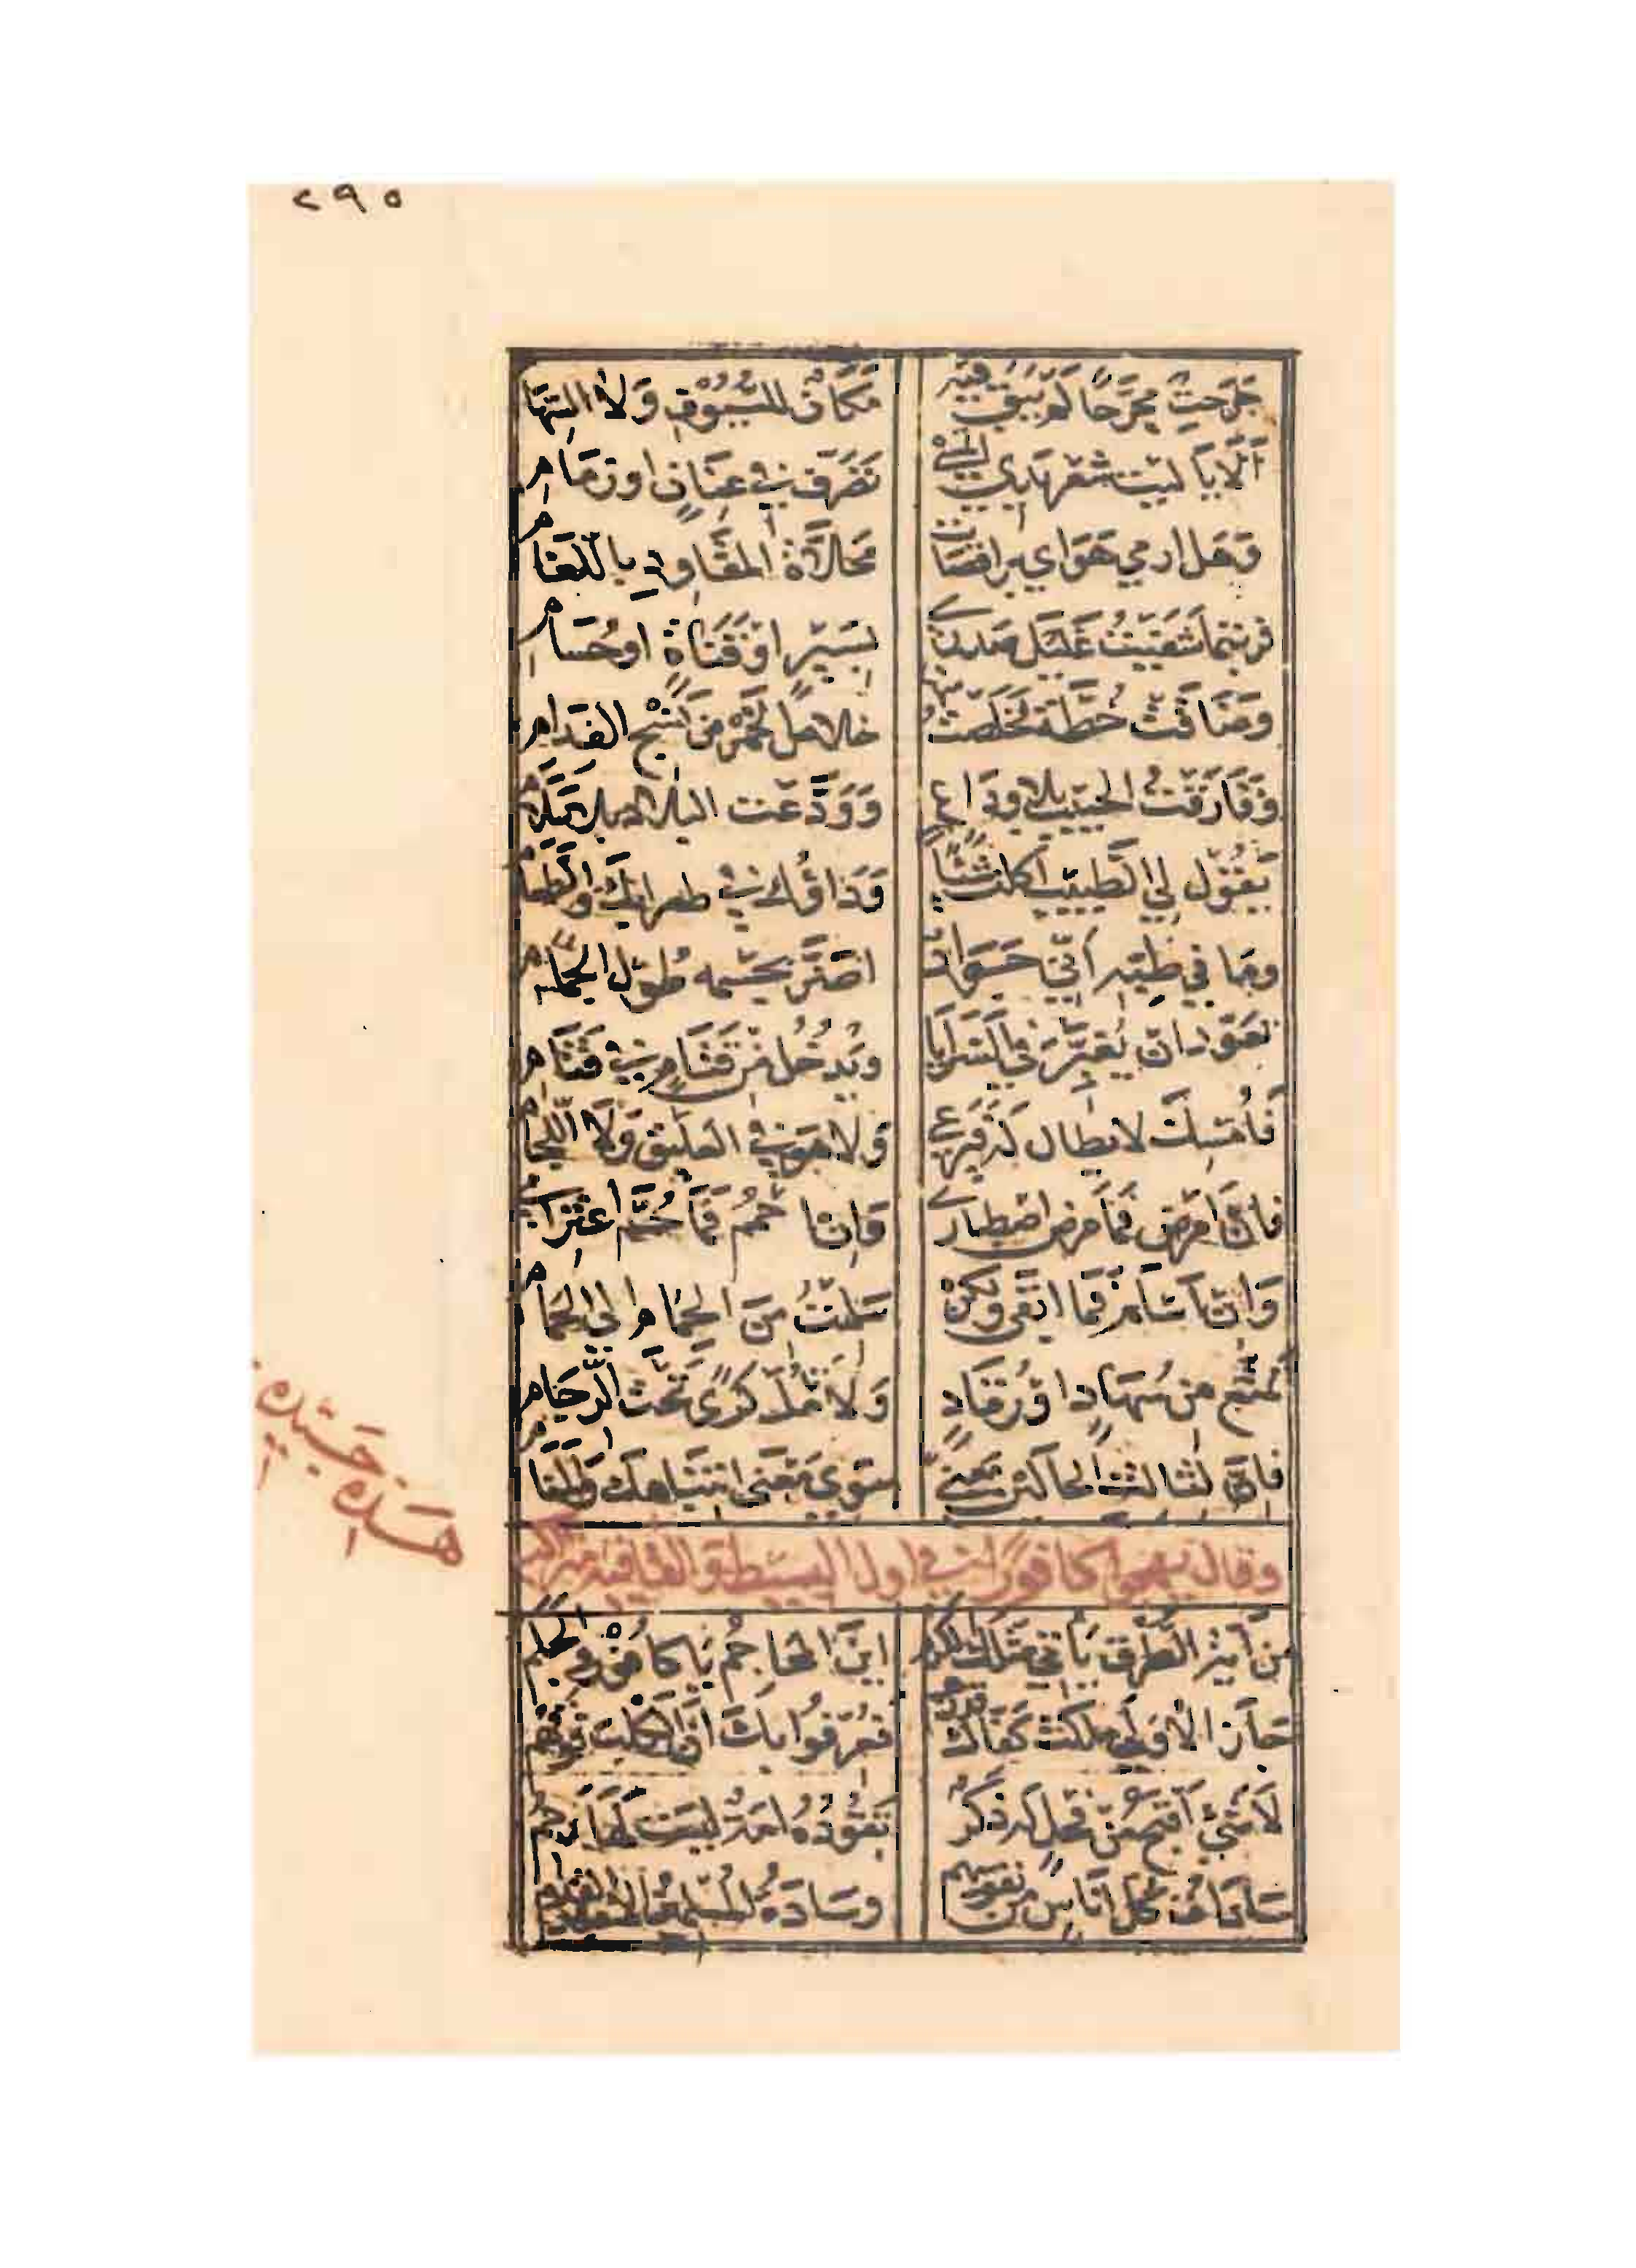 ٢٩٥
جَرَحتِ مجَرَّحاً لَم يَبقَ فيه مَكَانٌ للسُّيُوفِ وَلَا السِّهَام
ألَا يَا لَيت شعر يدي اتمسي تَصَرّف في عِنَانٍ او زمَام
وَهَل ارمي هَوَاي براقصَات محَلّاةِ المقَاودِ باللّغَام
فربّتما شَفَيتُ غَليل صَدري بسَيْرٍ اوْ قَنَاةٍ او حُسَام
وضَاقَت خُطّةٌ فخَلَصتُ منها خلاصَ الخَمْر من نَسْج الفدام
وفَارَقْتُ الحبيب بلا وداع وَوَدَّعت البلاد بلا سَلَام
يَقُول لي الطَّبيبُ اكلت شيئاً وَدَاؤُك في شرابك والطعام
وما في طبّه أنّي جَوَاد اضَرّ بجسْمه طُول الجمَام
تعَوّد ان يُغبِّرَ في السَّرَايا ويَدخُل مِن قَتَامٍ في قَتَام
فأمسِكَ لا يطال له فيرعي ولا هو في العليق وَلَا اللّجَام
فان امرَض فمَا مَرض اصطباري وَان احمم فمَا حُمَّ اعتزَامي
وَان اسلَم فمَا ابقَى ولكن سَلمتُ مِنَ الحِمَام الى الحمَام
تَمتّع من سُهَادٍ او رُقَادٍ وَلَا تَأمُل كَرًى تَحتَ الرِّجَام
فانّ لثالث الحَالَين مَعنى سوَى مَعنى انتبَاهك وَالمنَام
وقال يهجو كافوراً في اول البسيط والقافية متراكب
من ايّة الطُّرق يَأتي مثلَك الكرم اينَ المحَاجِمُ يَا كافور والجَلَم
جَازَ الأولى ملكَت كَفّاك قدرَهم فعُرِّفوا بك انّ الكَلب فوقَهم
لَا شَيْءَ أقبحُ من فحل له ذكَر تَقُودُهُ امَةٌ ليسَت لَهَا رَحِم
سَادَات كلّ انَاسٍ من نفوسهم وسَادَةُ المُسلمين الاعبد القزم
هَذه جَيّده